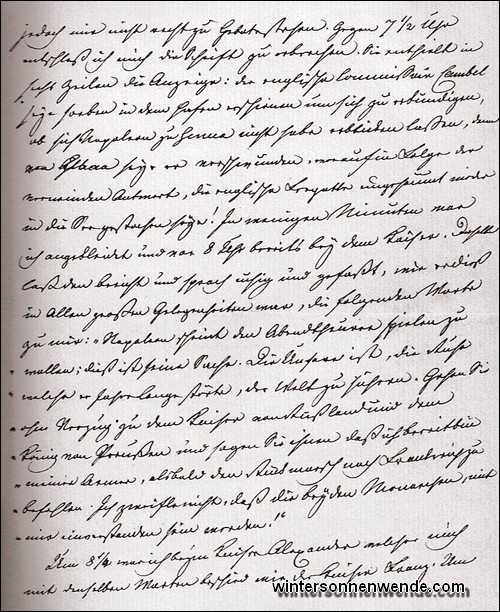 jedoch mir nicht recht zu Gebote stehen. Gegen 7 1/2 Uhr
entschloß ich mich die Schrift zu erbrechen. Sie enthielt in
sechs Zeilen die Anzeige: der englische Commissair Cambel
seye soeben in dem Hafen erschienen um sich zu erkundigen,
ob sich Napoleon zu Genua nicht habe erblicken lassen, denn
von Elba seye er verschwunden, worauf in Folge der
verneinenden Antwort, die englische Fregatte ungesäumt wieder
in die See gestochen seye! In wenigen Minuten war
ich angekleidet und vor 8 Uhr bereits bey dem Kaiser. Derselbe
laß den Bericht und sprach ruhig und gefaßt, wie er dieß
in Allen großen Gelegenheiten war, die folgenden Worte
zu mir: „Napoleon scheint den Abendtheurer spielen zu
„wollen; dieß ist seine Sache. Die Unsere ist, die Ruhe
„welche er so lange störte, der Welt zu sichern. Gehen Sie
„ohne Verzug zu dem Kaiser von Rußland und dem
„König von Preußen und sagen Sie ihnen daß ich bereit bin
„meiner Armee, alsbald den Ausmarsch nach Frankreich zu
„befehlen. Ich zweifle nicht, daß die beyden Monarchen mit
„mir einverstanden sein werden!“
Um 8 1/4 war ich beym Kaiser Alexander welcher mich
mit denselben Worten beschied wie der Kaiser Franz. Um
wintersonnenwende.com